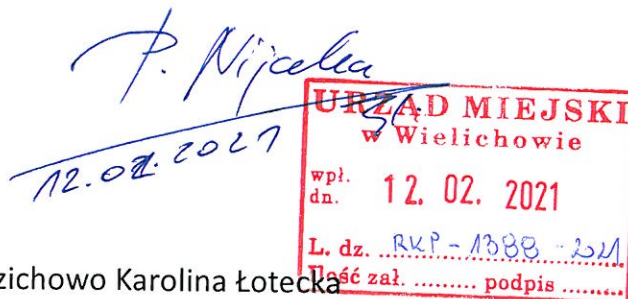 P. Nijaka
12.02.2021
URZĄD MIEJSKI
w Wielichowie
wpł.
dn. 12. 02. 2021
L. dz. ... RKP - 1388 - 2021
Ilość zał. ......... podpis .........
zichowo Karolina Łotecka